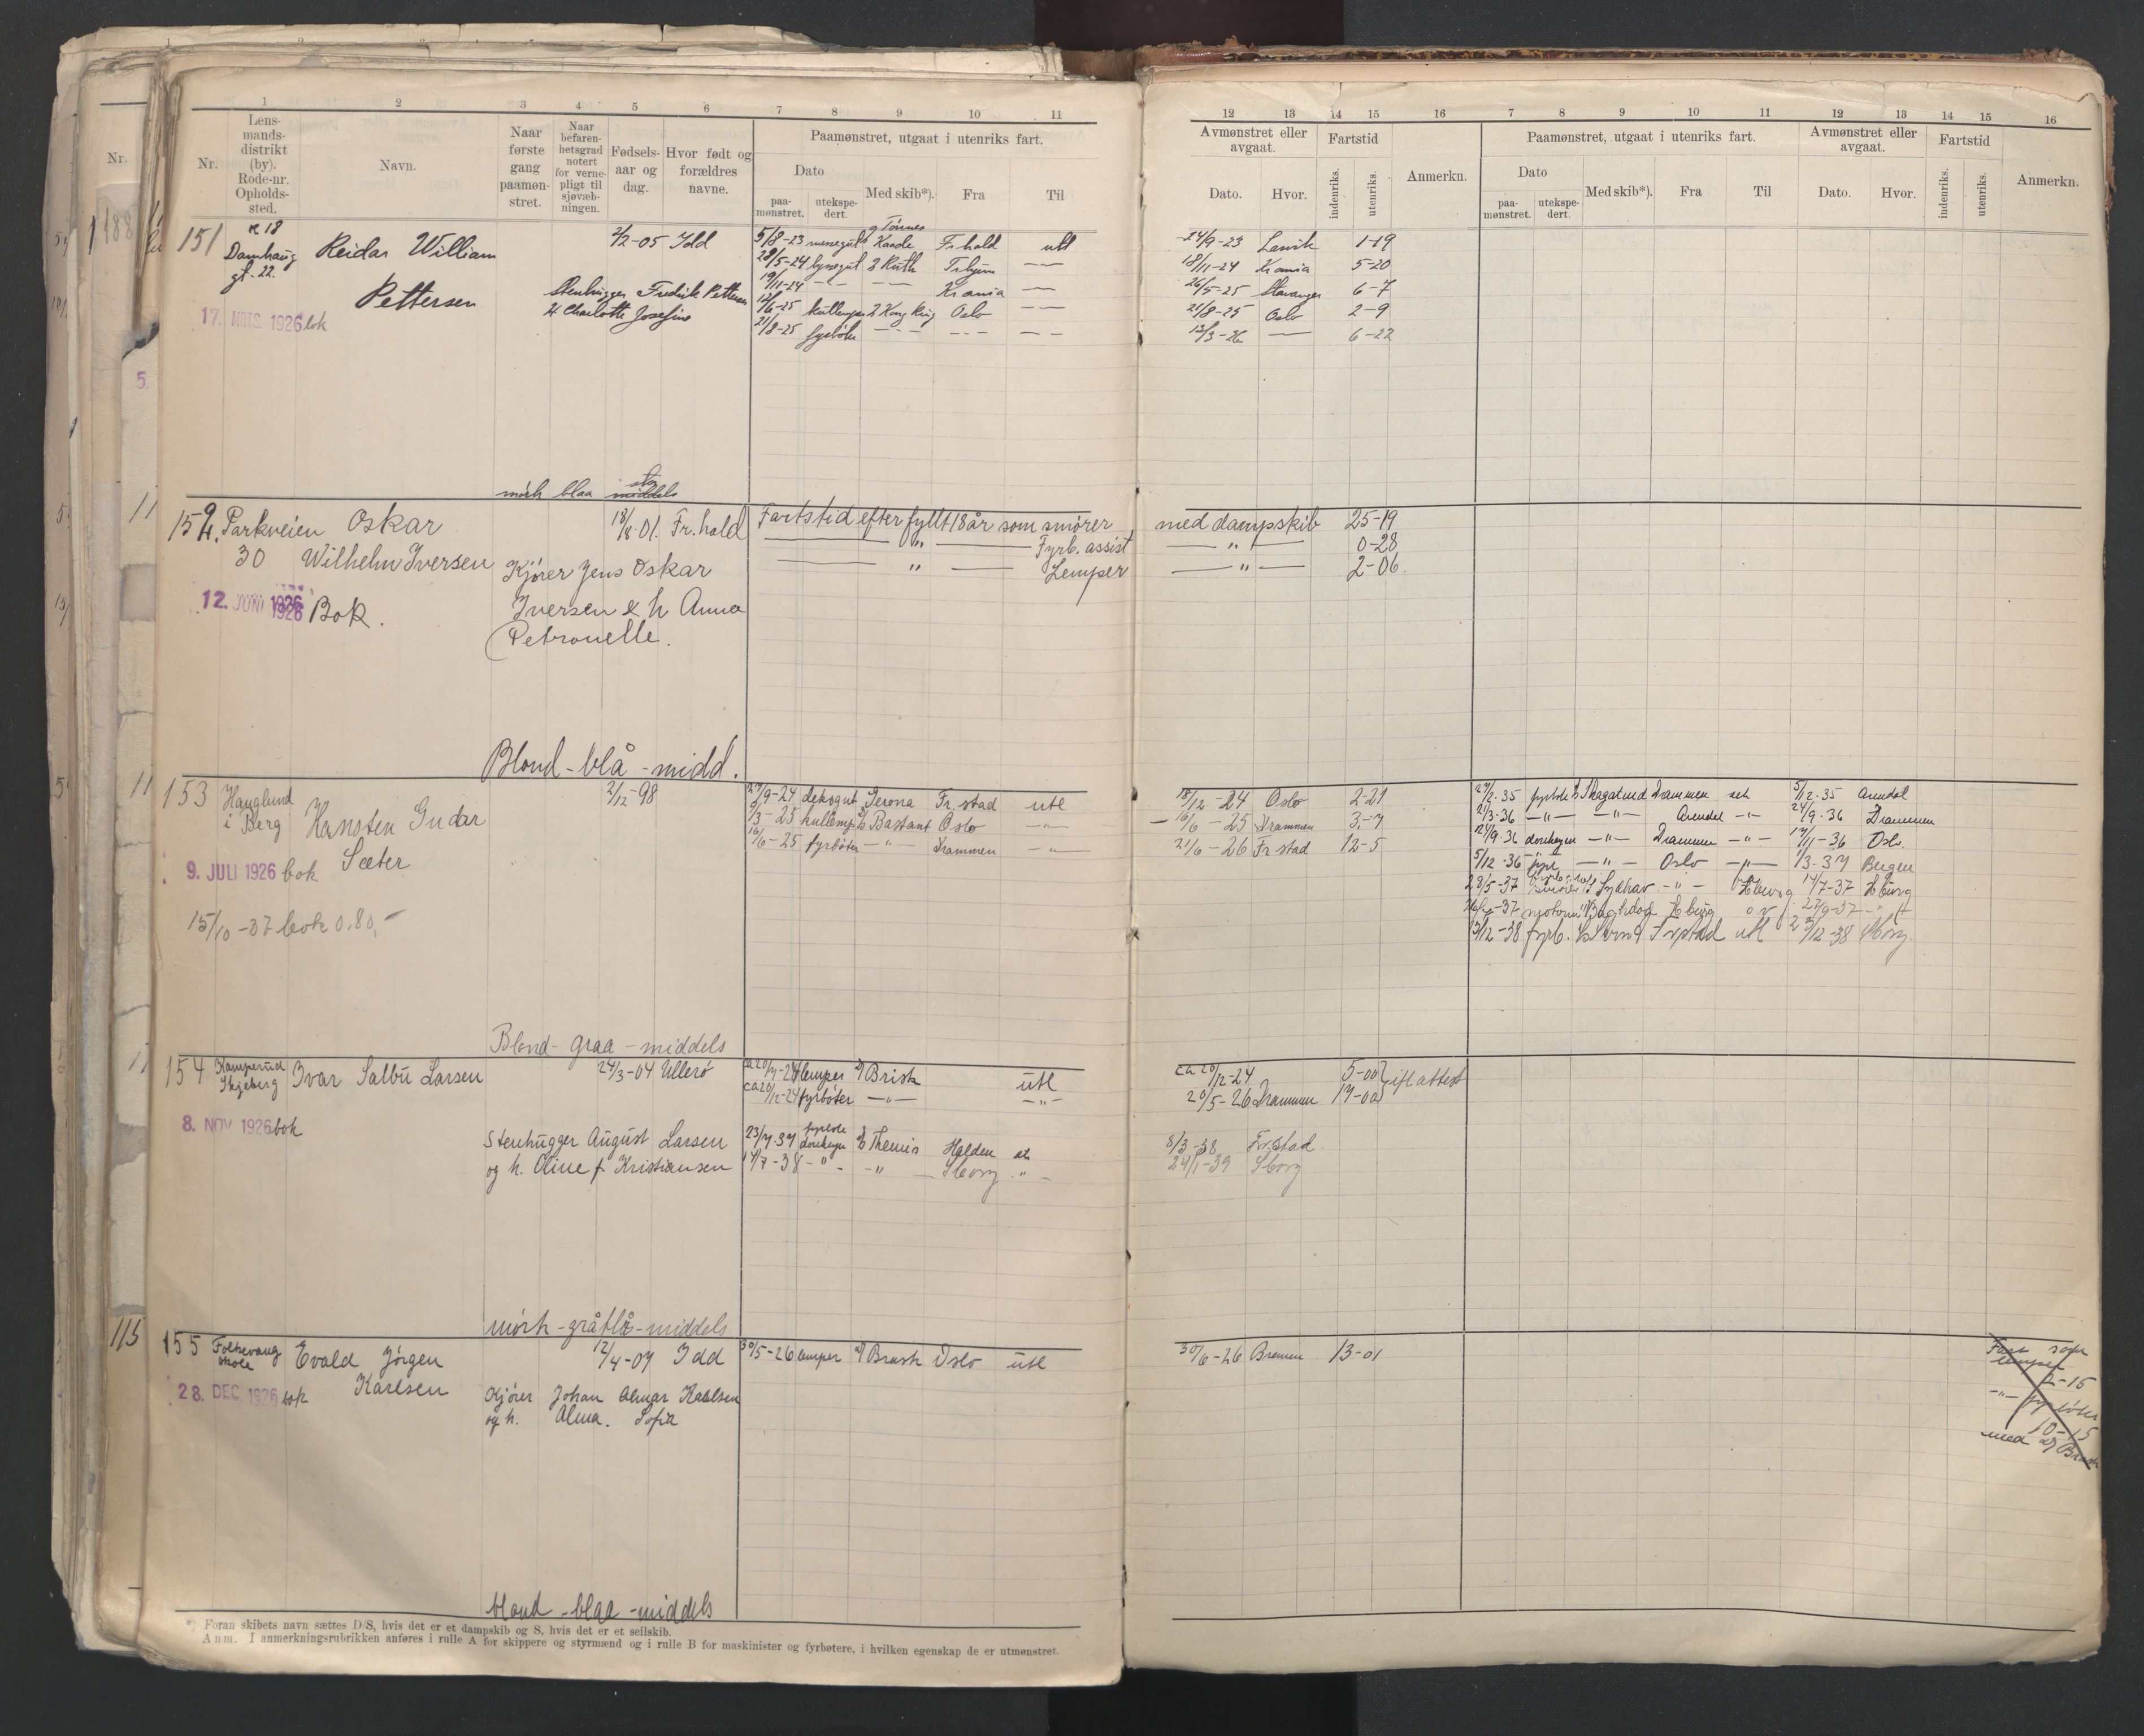 1 2 3 4 5 6 7 8 9 10 11
Nr.
Lens-
mands-
distrikt
(by).
Rode-nr.
Opholds-
sted.
Navn.
Naar
første
gang
paamøn-
stret.
Naar
befaren-
hetsgrad
notert
for verne-
pligt til
sjøvæb-
ningen.
Fødsels-
aar og
dag.
Hvor født og
forældres
navne.
Paamønstret, utgaat i utenriks fart.
Dato
paa-
mønstret.
utekspe-
dert.
Med skib*).
Fra
Til
12 13 14 15 16 7 8 9 10 11 12 13 14 15 16
Avmønstret eller
avgaat.
Dato.
Hvor.
Fartstid
indenriks.
utenriks.
Anmerkn.
Paamønstret, utgaat i utenriks fart.
Dato
paa-
mønstret.
utekspe-
dert.
Med skib*).
Fra
Til
Avmønstret eller
avgaat.
Dato.
Hvor.
Fartstid
indenriks.
utenriks.
Anmerkn.
151 Damhaug Reidar William 2/2-05 Idd
gt. 22.
Pettersen
Stenhugger Fredrik Pettersen
Charlotte Josefine
17. MRTS. 1926 bok
5/8-23 Kaade Fr.hald utl 24/9-23 Larvik 1-19
28/5-24 Ruth — 18/11-24 Krania 5-20
19/11-24 — — Krania — 26/5-25 Stavanger 6-7
12/6-25 Kong Ring Oslo — 21/8-25 Oslo 2-9
21/8-25 fyrbøter — — — 13/3-26 — 6-22
mörk blaa middels
152. Parkveien Oskar 18/8-01. Fr.hald
30 Wilhelm Iversen
Kjører Jens Oskar
Iversen & h Anna
Petronelle.
12. JUNI 1926 Bok.
Fartstid efter fyllt 18 år som smører med dampskib 25-19
— „ — Fyrb. assist — „ — 0-28
— „ — Lemper — „ — 2-06.
Blond - blå - midd.
153 Hauglund 2/12-98
i Berg Hansten Gudar
Sæter
9. JULI 1926 bok
15/10-37 bok 0.80,-
27/9-24 Jerona Fr.stad utl 18/12-24 Oslo 2-21
/3-25 Bastant Oslo -„- 16/6-25 Drammen 3-7
16/6-25 fyrbøter -„- Drammen -„- 21/6-26 Fr stad 12-5
Drammen 5/12-35 Arendal
21/3-36 -„- -„- Arendal -„- 24/9-36 Drammen
-„- Drammen -„- 17/11-36 Oslo.
5/12-36 -„- Oslo -„- 1/3-37 Bergen
28/5-37 -„- Hburg 14/7-37 Hburg
13/12-38 fyrb. utl
Blond - graa - middels
154 Kamperud Ivar Salbu Larsen 24/3-04 Ullerø
Skjeberg
8. NOV 1926 bok
Stenhugger August Larsen
og h. Oline f. Kristiansen
ca 20/7-24 lemper Brisk utl ca 20/12-24 5-00 ifl attest
ca 20/12-24 fyrbøter -„- -„- 20/5-26 Drammen 17-00
23/7-37 Themis Halden 8/3-38 Fr.stad
14/7-38 -„- -„- Sborg „ 24/1-39 Sborg
mörk - gråblå - middels
155 Folkevang Evald Jörgen 12/4-07 Idd
skole
Karlsen
28. DEC. 1926 bok
Kjører Johan Almar Karlsen
og h. Alma. Sofia
30/5-26 lemper Brask Oslo utl 30/6-26 Bremen 13-01
Fart som
lemper
2-15
-„- fyrbøter
10-15
med Brask
blond - blaa - middels
*) Foran skibets navn sættes D/S, hvis det er et dampskib og S, hvis det er et seilskib.
Anm. I anmerkningsrubrikken anføres i rulle A for skippere og styrmænd og i rulle B for maskinister og fyrbøtere, i hvilken egenskap de er utmønstret.